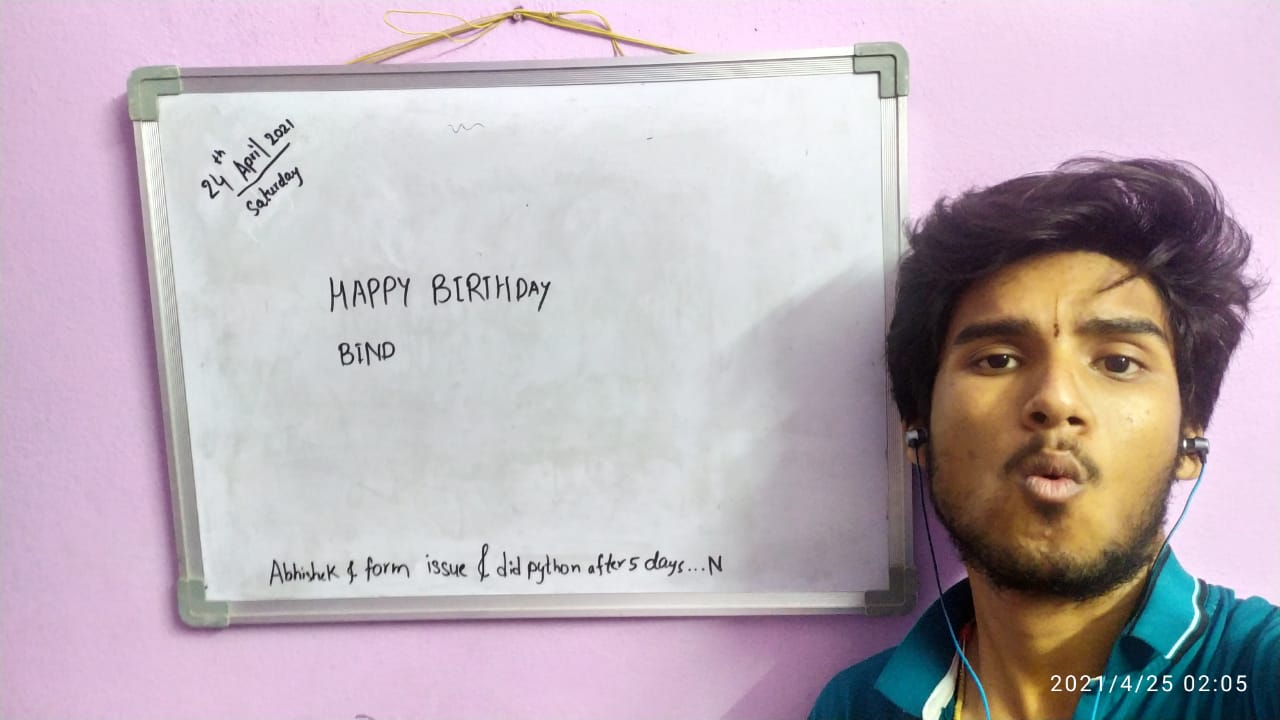 24th April 2021
Saturday
HAPPY BIRTHDAY
BIND
Abhishek & form issue & did python after 5 days...N
2021/4/25 02:05